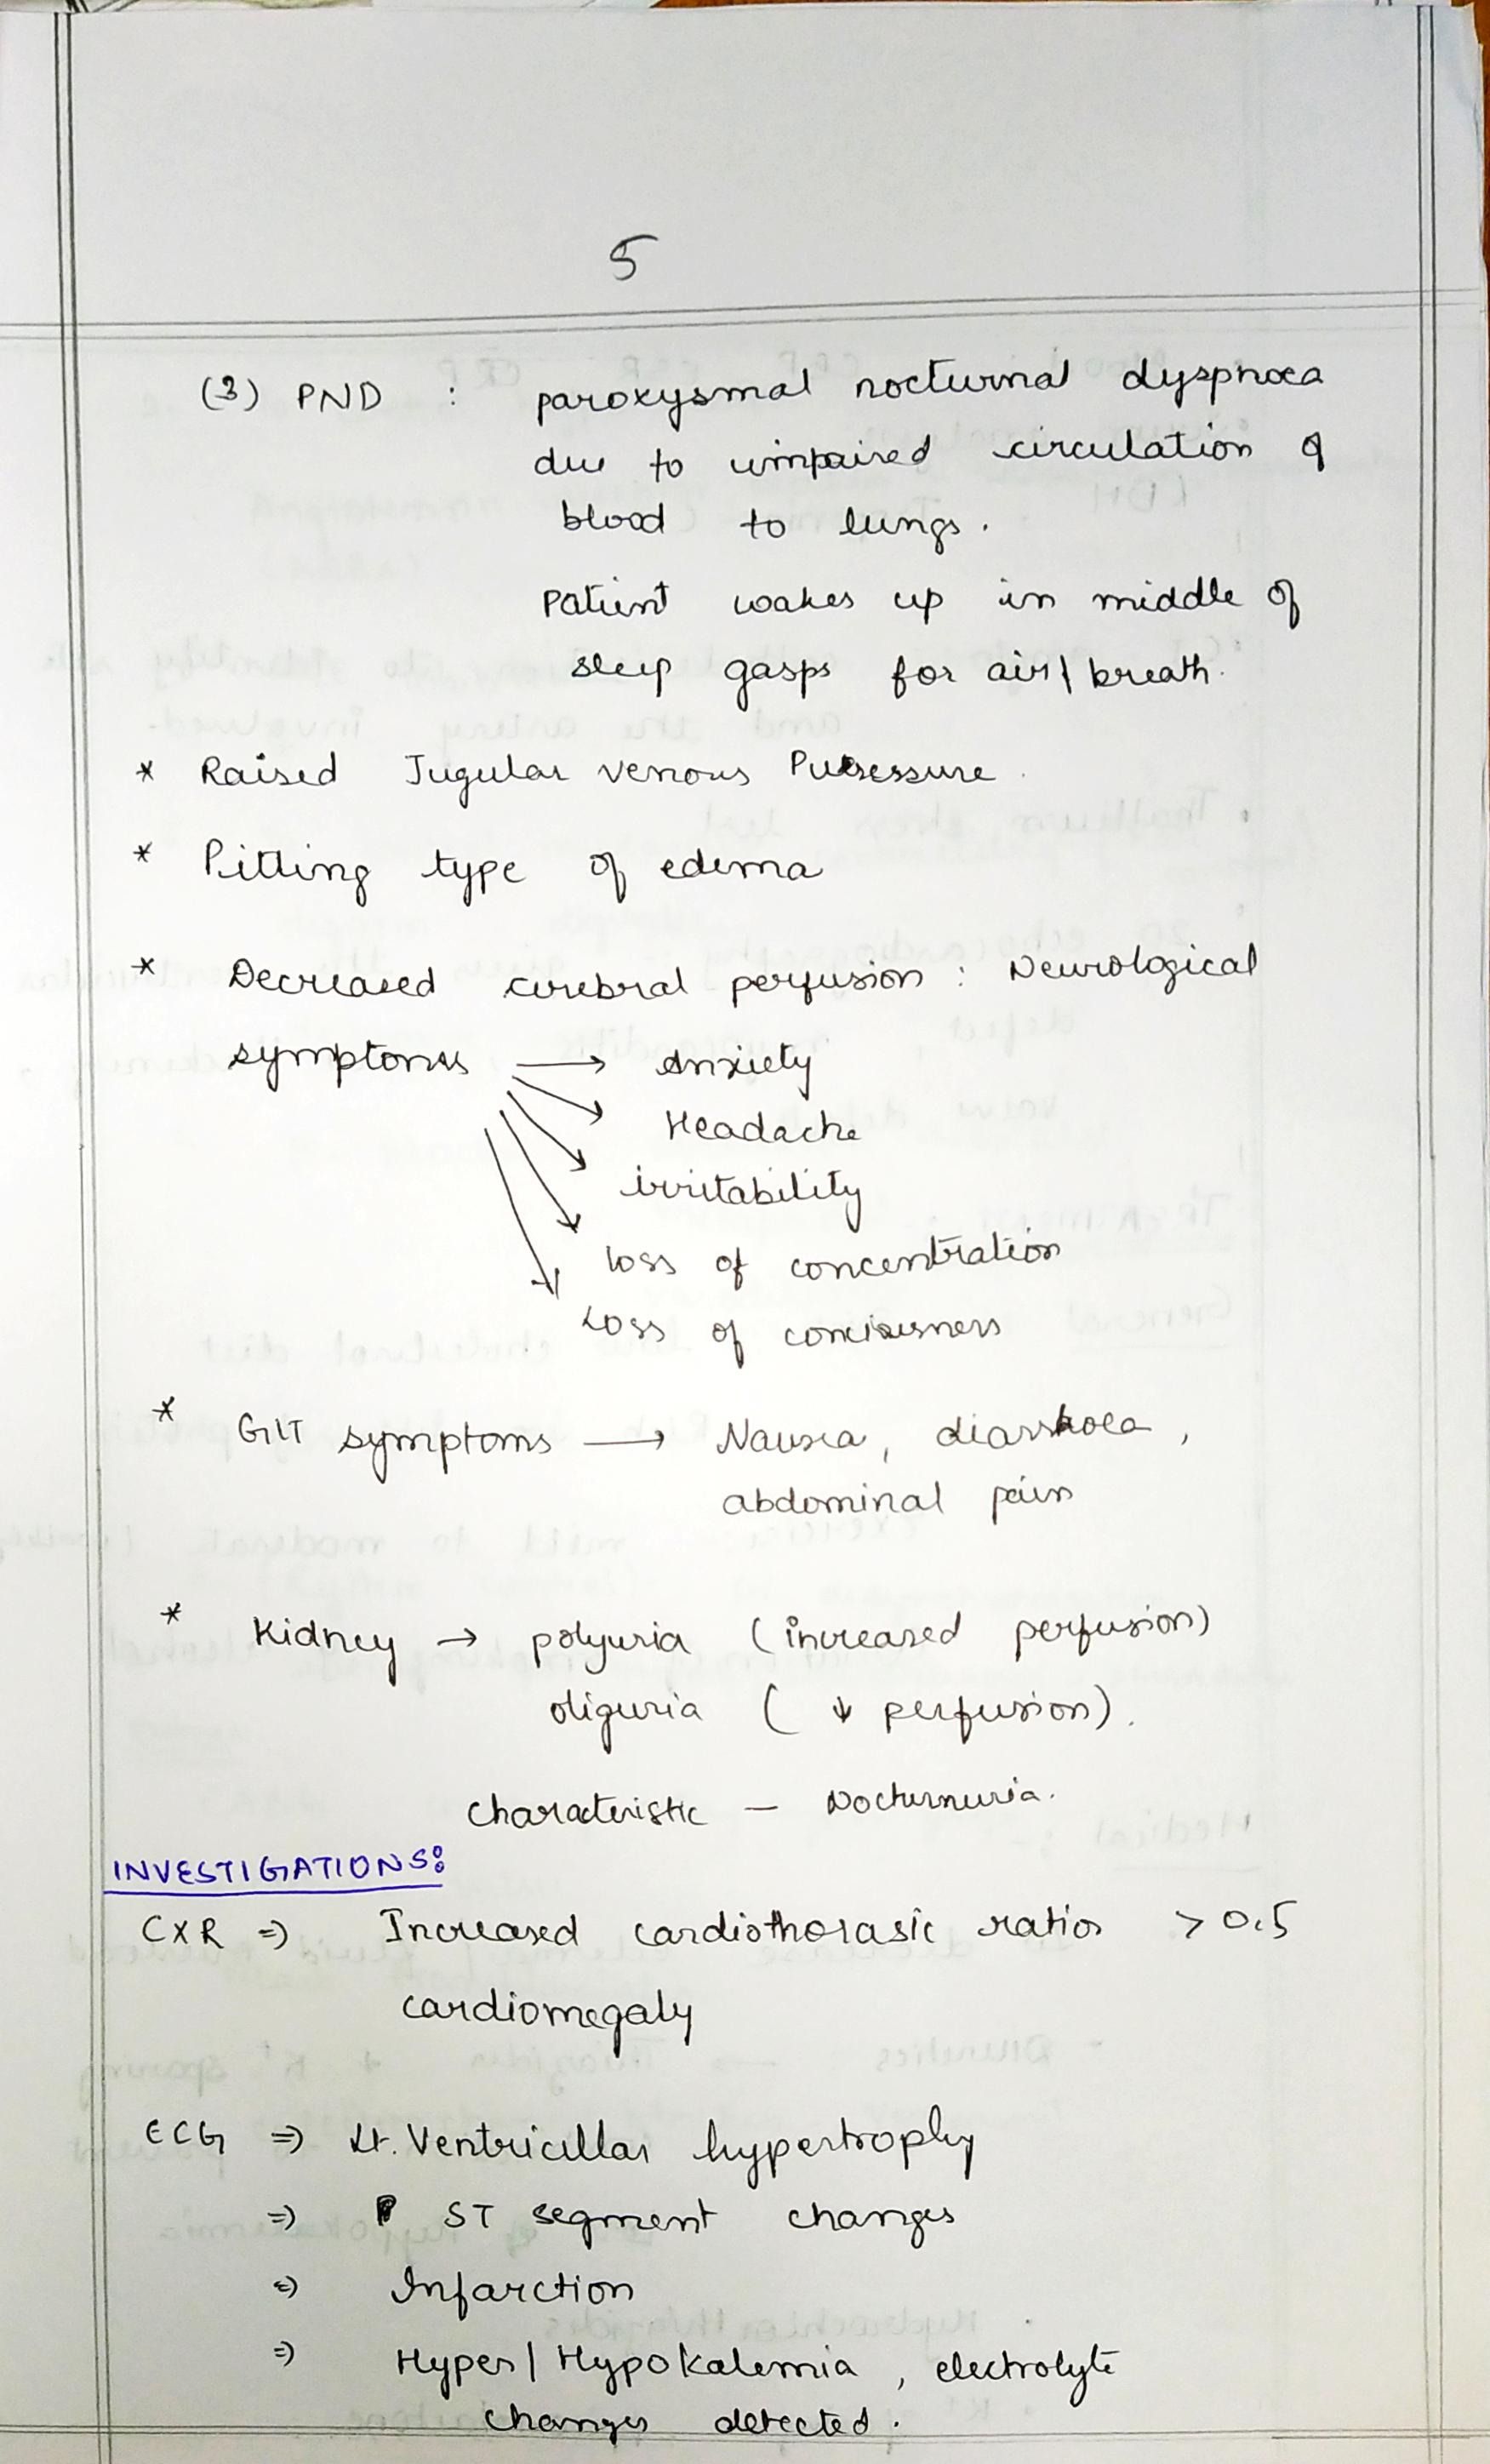 5
(3) PND : paroxysmal nocturnal dyspnoea
due to impaired circulation of
blood to lungs.
Patient wakes up in middle of
sleep gasps for air/breath.
* Raised Jugular venous Pressure.
* Pitting type of edema
* Decreased cerebral perfusion : Neurological
symptoms → Anxiety
Headache
irritability
loss of concentration
Loss of conciousness
* GIT symptoms → Nausea, diarrhoea,
abdominal pain
* Kidney → polyuria (increased perfusion)
oliguria (↓ perfusion).
Characteristic – Nocturnuria.
INVESTIGATIONS:
CXR ⇒ Increased cardiothorasic ratio > 0.5
cardiomegaly
ECG ⇒ Lt. Ventricular hypertrophy
⇒ ST segment changes
⇒ Infarction
⇒ Hyper/Hypokalemia, electrolyte
changes detected.